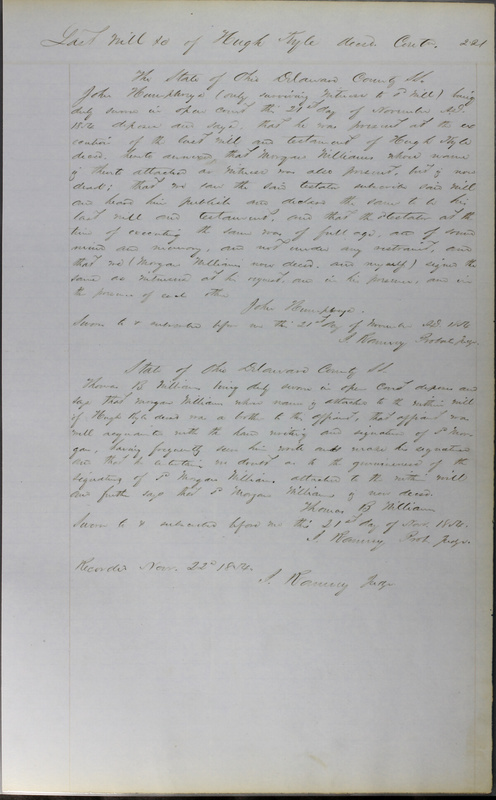 Last Will &c of Hugh Kyle decd. Cont. 221
The State of Ohio Delaware County Ss.
John Humphreys (only surviving witness to Sd will) being
duly sworn in open court this 21st day of November AD.
1854 deposes and says, that he was present at the ex
ecution of the last will and testament of Hugh Kyle
decd. hereto annexed, that Morgan Williams whose name
is thereto attached as witness was also present, but is now
dead; that we saw the said testator subscribe said will
and heard him publish and declare the same to be his
last will and testament, and that the testator at the
time of executing the same was of full age, and of sound
mind and memory, and not under any restraint, and
that we (Morgan Williams now decd. and myself) signed the
same as witnesses at his request, and in his presence, and in
the presence of each other
John Humphreys.
Sworn to & subscribed before me this 21st day of November AD. 1854
Probate Judge.
State of Ohio Delaware County Ss.
Thomas B Williams being duly sworn in open Court deposes and
says that Morgan Williams whose name is attached to the within will
of Hugh Kyle decd was a brother to this affiant, that affiant was
well acquainted with the hand writing and signature of Sd Mor-
gan, having frequently seen him write and make his signature
and that he entertains no doubt as to the genuineness of the
signature of Sd Morgan Williams attached to the within will
and further says that Sd Morgan Williams is now decd.
Thomas B Williams
Sworn to & subscribed before me this 21st day of Nov. 1854.
Prob. Judge.
Recorded Nov. 22d 1854.
Judge